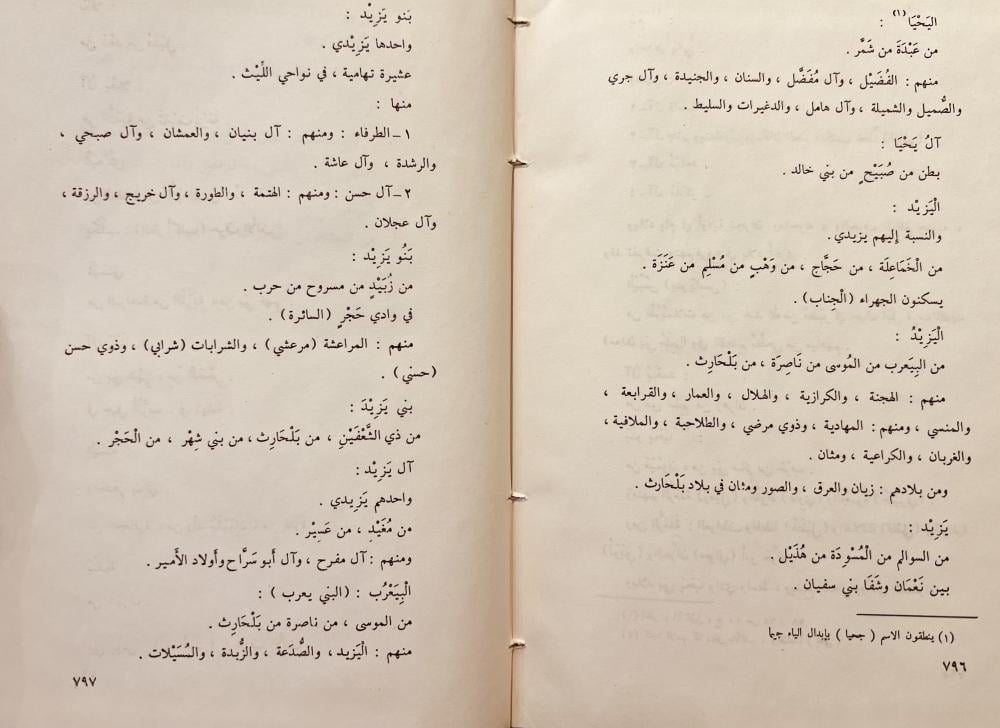 اليَحْيَا (١) :
من عَبْدَةَ من شَمَّر .
منهم : الفُضَيْل ، وآل مُفَضَّل ، والسنان ، والجنيدة ، وآل جري
والصُّميل والشميلة ، وآل هامل ، والدغيرات والسليط .
آلُ يَحْيَا :
بطن من صُبَيْحٍ من بني خالد .
الْيَزِيْد :
والنسبة إليهم يزيدي .
من الْخَمَاعِلَة ، من حَجَّاج ، من وَهْبٍ من مُسْلِم من عَنَزَة .
يسكنون الجهراء (الْجِناب) .
الْيَزِيْدُ :
من البِيَعرب من المُوسى من نَاصِرَة ، من بَلْحَارِث .
منهم : الهجنة ، والكرازية ، والهلال ، والعمار ، والقرابعة ،
والمنسي ، ومنهم : المهادية ، وذوي مرضي ، والطلاحبة ، والملافية ،
والغربان ، والكراعية ، ومثان .
ومن بلادهم : زيان والعرق ، والصور ومثان في بلاد بَلْحَارث .
يَزِيْد :
من السوالم من الْمُسْوِدَة من هُذَيْل .
بين نَعْمَان وشَفَا بني سفيان .
(١) ينطقون الاسم ( جحيا ) بإبدال الياء جيما
٧٩٦
بَنو يَزِيْد :
واحدها يَزِيْدي .
عشيرة تهامية ، في نواحي اللِّيْث .
منها :
١ ـ الطرفاء : ومنهم : آل بنيان ، والعمشان ، وآل صبحي ،
والرشدة ، وآل عاشة .
٢ ـ آل حسن : ومنهم : الهتمة ، والطورة ، وآل خريج ، والرزقة ،
وآل عجلان .
بَنُو يَزِيْد :
من زُبَيْدٍ من مسروح من حرب .
في وادي حَجْرٍ (السائرة) .
منهم : المراعشة (مرعشي) ، والشرابات (شرابي) ، وذوي حسن
(حسني) .
بني يَزِيْدَ :
من ذي الثَّعْفَيْنِ ، من بَلْحَارِث، من بني شِهْر ، من الْحَجْر .
آل يَزِيْد :
واحدهم يَزِيدي .
من مُغَيْدٍ ، من عَسِيْر .
ومنهم : آل مفرح ، وآل أبو سَرَّاح وأولاد الأمير .
الْبِيَعْرُب : (البني يعرب) :
من الموسى ، من ناصرة من بَلْحَارِث .
منهم : الْيَزِيد ، والصُّدَعَة ، والزُّبدة ، والمُسَيْلات .
٧٩٧